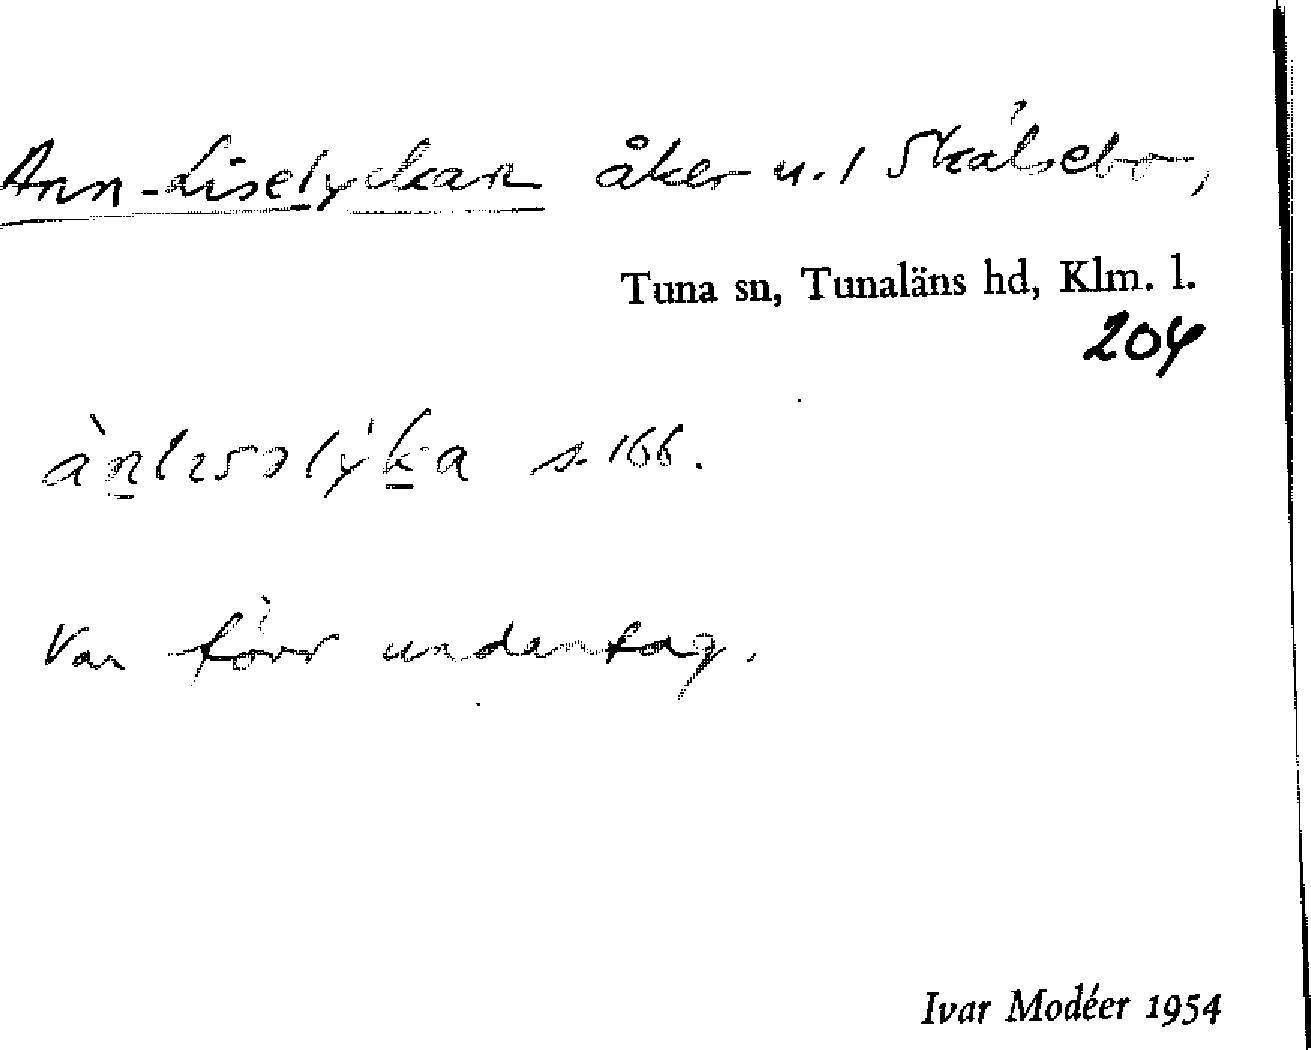 Ann-Liselyckan åker n. 1 Skålsebo,
Tuna sn, Tunaläns hd, Klm. l.
204
s. 166.
Var förr undantag.
Ivar Modéer 1954